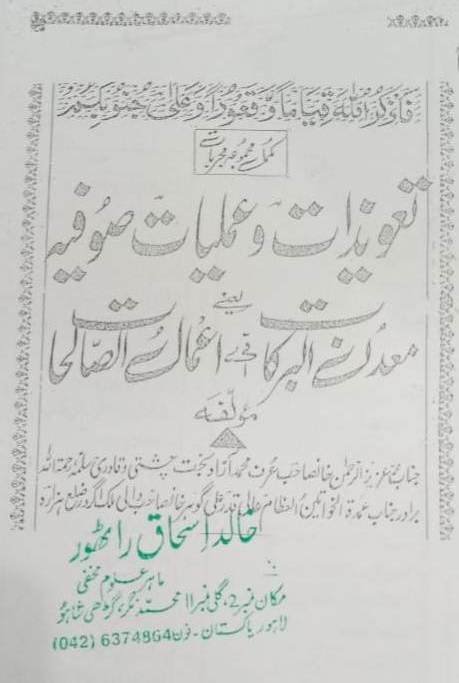 فَاذْكُرُوا اللهَ قِيَامًا وَّقُعُوْدًا وَّعَلٰى جُنُوْبِكُمْ
مکمل مجموعہ مجربات
تعویذات و عملیات صوفیہ
یعنے
معدن البرکات فی اعمال الصالحات
مؤلفہ
جناب محمد عزیز الرحمٰن خانصاحب عرف محمد آزاد بخت چشتی و قادری سلمہ رحمۃ اللہ
برادر جناب عمدۃ الخوانین العظام عالی قدر علی گوہر خانصاحب والی ملک اگرور ضلع ہزارہ
خالد اسحاق راٹھور
ماہر علوم مخفی
مکان نمبر 2، گلی نمبر 11 محمد نگر، گڑھی شاہو
لاہور پاکستان - فون 6374864 (042)